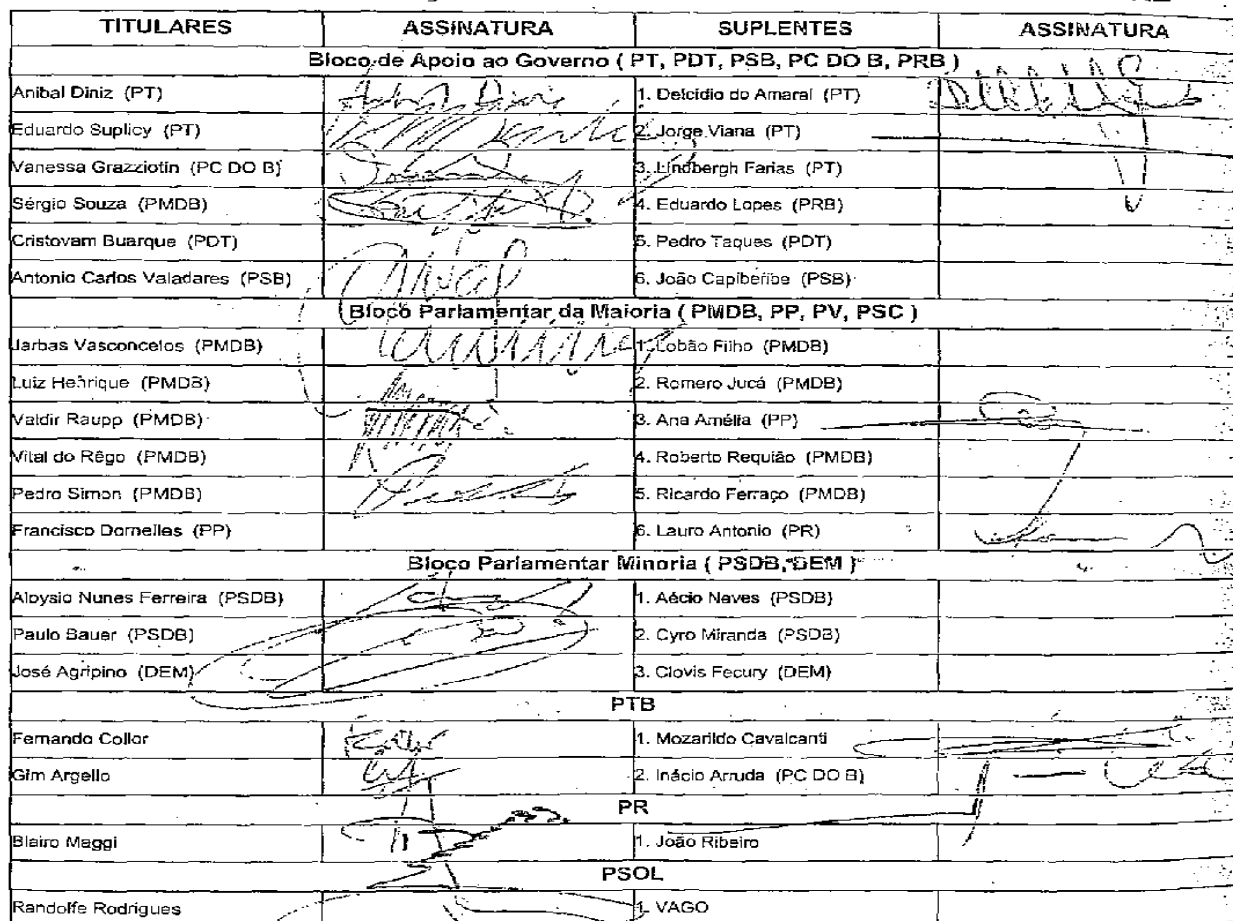 TITULARES ASSINATURA SUPLENTES ASSINATURA
Bloco de Apoio ao Governo ( PT, PDT, PSB, PC DO B, PRB )
Anibal Diniz (PT) 1. Delcídio do Amaral (PT)
Eduardo Suplicy (PT) 2. Jorge Viana (PT)
Vanessa Grazziotin (PC DO B) 3. Lindbergh Farias (PT)
Sérgio Souza (PMDB) 4. Eduardo Lopes (PRB)
Cristovam Buarque (PDT) 5. Pedro Taques (PDT)
Antonio Carlos Valadares (PSB) 6. João Capiberibe (PSB)
Bloco Parlamentar da Maioria ( PMDB, PP, PV, PSC )
Jarbas Vasconcelos (PMDB) 1. Lobão Filho (PMDB)
Luiz Henrique (PMDB) 2. Romero Jucá (PMDB)
Valdir Raupp (PMDB) 3. Ana Amélia (PP)
Vital do Rêgo (PMDB) 4. Roberto Requião (PMDB)
Pedro Simon (PMDB) 5. Ricardo Ferraço (PMDB)
Francisco Dornelles (PP) 6. Lauro Antonio (PR)
Bloco Parlamentar Minoria ( PSDB, DEM )
Aloysio Nunes Ferreira (PSDB) 1. Aécio Neves (PSDB)
Paulo Bauer (PSDB) 2. Cyro Miranda (PSDB)
José Agripino (DEM) 3. Clovis Fecury (DEM)
PTB
Fernando Collor 1. Mozarildo Cavalcanti
Gim Argello 2. Inácio Arruda (PC DO B)
PR
Blairo Maggi 1. João Ribeiro
PSOL
Randolfe Rodrigues 1. VAGO